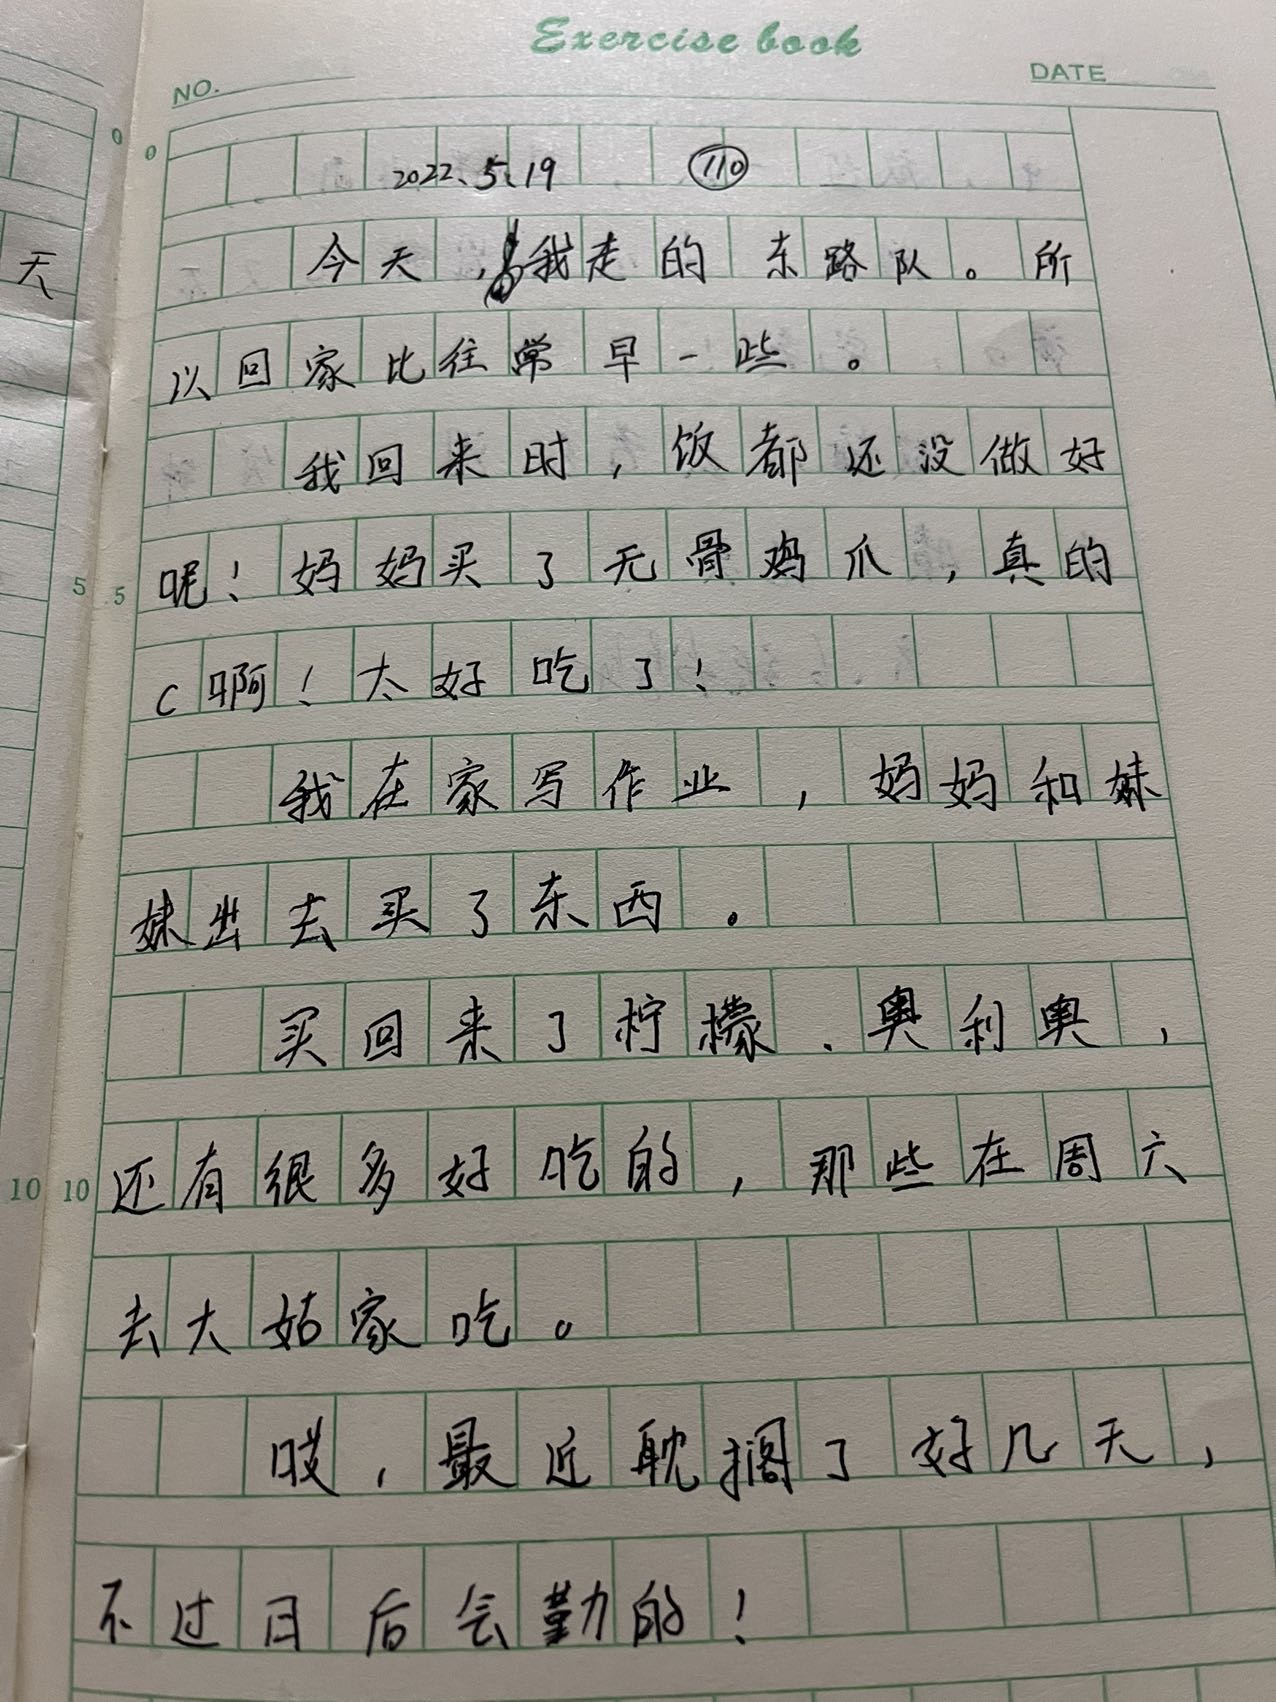 Exercise book
NO.
DATE
0
0
2022.5.19 110
天
今天，我走的东路队。所
以回家比往常早一些。
我回来时，饭都还没做好
5 5
呢！妈妈买了无骨鸡爪，真的
c啊！太好吃了！
我在家写作业，妈妈和妹
妹出去买了东西。
买回来了柠檬、奥利奥，
10 10
还有很多好吃的，那些在周六
去大姑家吃。
哎，最近耽搁了好几天，
不过日后会勤的！